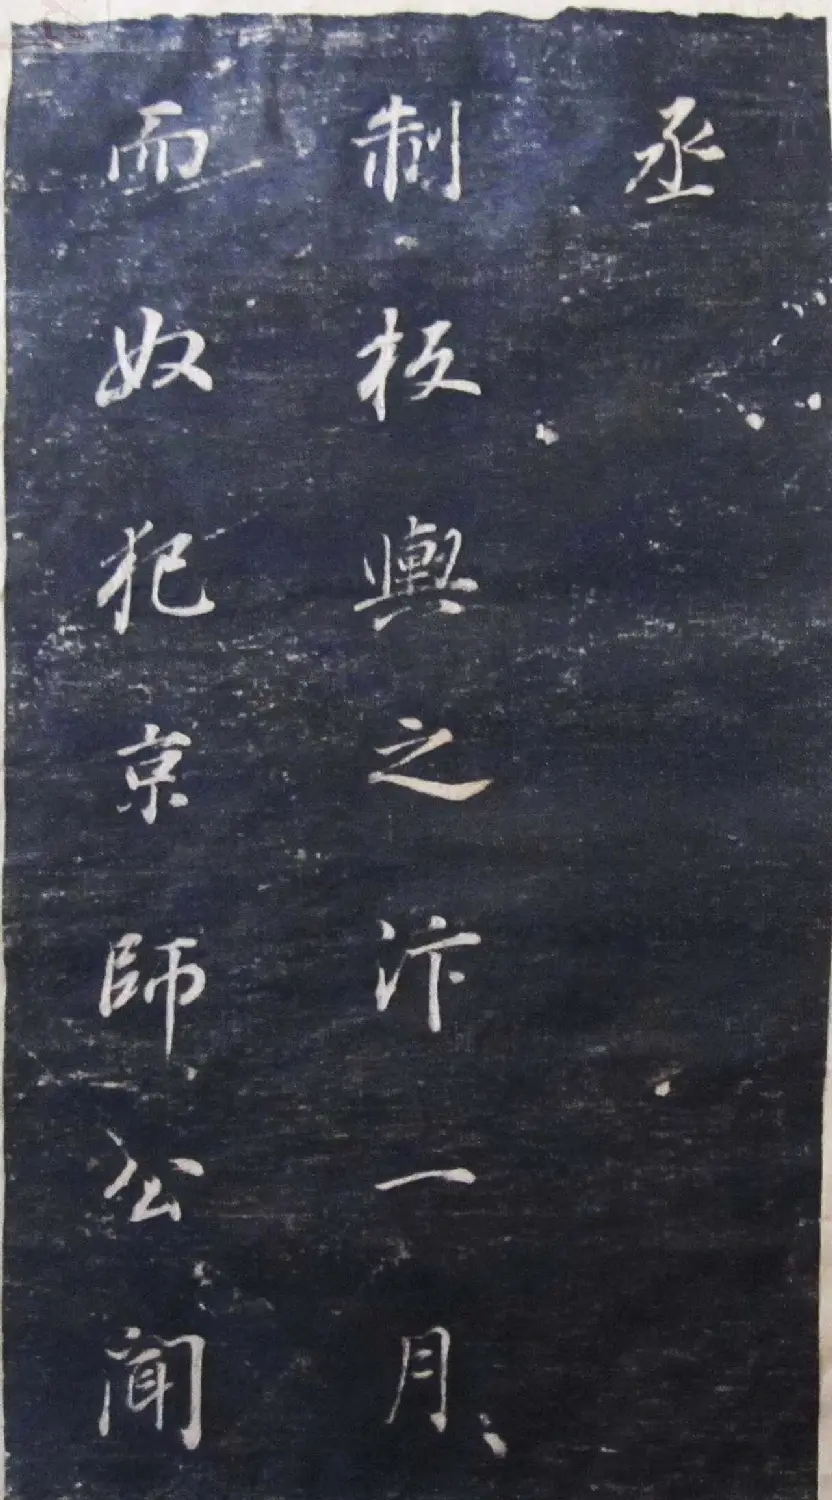 丞
制板輿之汴一月
而奴犯京師公聞